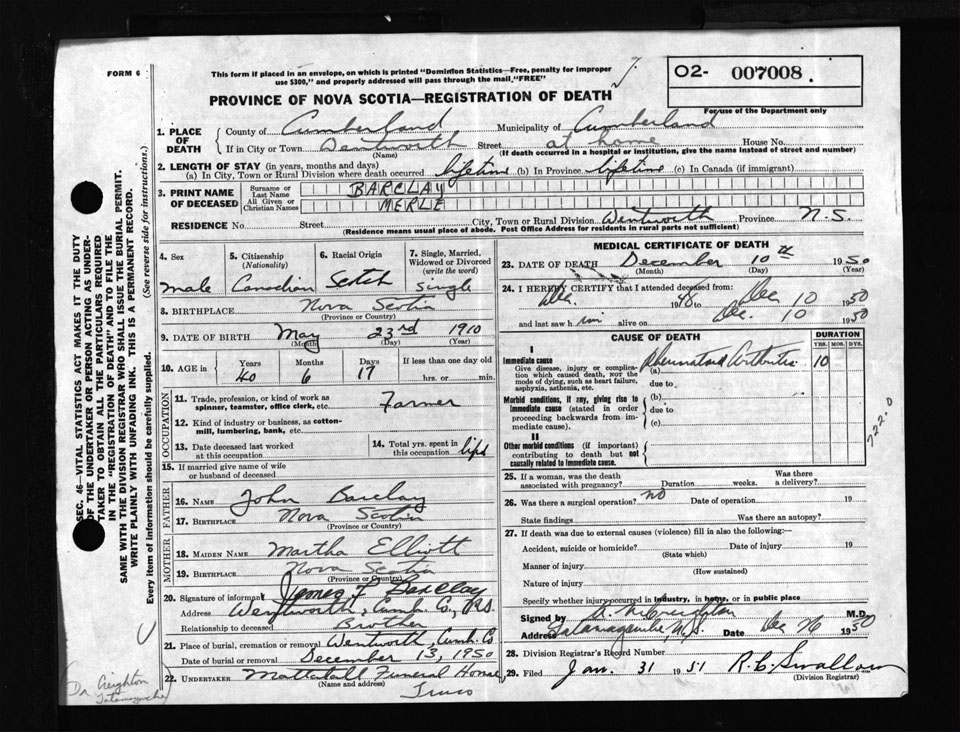 FORM 6
This form if placed in an envelope, on which is printed "Dominion Statistics—Free, penalty for improper
use $300," and properly addressed will pass through the mail, "FREE"
7.
O2- 007008.
For use of the Department only
PROVINCE OF NOVA SCOTIA—REGISTRATION OF DEATH
1. PLACE OF DEATH
County of Cumberland Municipality of Cumberland
If in City or Town Wentworth Street at home House No.
(Name) (If death occurred in a hospital or institution, give the name instead of street and number)
2. LENGTH OF STAY (in years, months and days)
(a) In City, Town or Rural Division where death occurred lifetime (b) In Province lifetime (c) In Canada (if immigrant)
3. PRINT NAME OF DECEASED
Surname or Last Name BARCLAY
All Given or Christian Names MERLE
RESIDENCE No. Street City, Town or Rural Division Wentworth Province N.S.
(Residence means usual place of abode. Post Office Address for residents in rural parts not sufficient)
4. Sex
male
5. Citizenship (Nationality)
Canadian
6. Racial Origin
Scotch
7. Single, Married, Widowed or Divorced (write the word)
single
8. BIRTHPLACE Nova Scotia
(Province or Country)
9. DATE OF BIRTH May 23rd 1910
(Month) (Day) (Year)
10. AGE in Years Months Days If less than one day old
40 6 17 hrs. or min.
OCCUPATION
11. Trade, profession, or kind of work as
spinner, teamster, office clerk, etc. Farmer
12. Kind of industry or business, as cotton-
mill, lumbering, bank, etc.
13. Date deceased last worked
at this occupation
14. Total yrs. spent in
this occupation life
15. If married give name of wife
or husband of deceased
FATHER
16. NAME John Barclay
17. BIRTHPLACE Nova Scotia
(Province or Country)
MOTHER
18. MAIDEN NAME Martha Elliott
19. BIRTHPLACE Nova Scotia
(Province or Country)
20. Signature of informant James F Barclay
Address Wentworth, Cumb. Co., N.S.
Relationship to deceased Brother
21. Place of burial, cremation or removal Wentworth, Cumb. Co.
Date of burial or removal December 13, 1950
22. UNDERTAKER Mattatall Funeral Home
(Name and address) Truro
MEDICAL CERTIFICATE OF DEATH
23. DATE OF DEATH December 10th 1950
(Month) (Day) (Year)
24. I HEREBY CERTIFY that I attended deceased from:
Dec. 1948 to Dec 10 1950
and last saw him alive on Dec. 10 1950
CAUSE OF DEATH
DURATION
YRS. MOS. DYS.
I
Immediate cause
Give disease, injury or complica-
tion which caused death, NOT the
mode of dying, such as heart failure,
asphyxia, asthenia, etc.
(a) Rheumatoid Arthritis 10
due to
Morbid conditions, if any, giving rise to
immediate cause (stated in order
proceeding backwards from im-
mediate cause).
(b)
due to
(c)
II
Other morbid conditions (if important)
contributing to death but not
causally related to immediate cause.
722.0
25. If a woman, was the death
associated with pregnancy? Duration weeks. Was there
a delivery?
26. Was there a surgical operation? no Date of operation 19
State findings Was there an autopsy?
27. If death was due to external causes (violence) fill in also the following:—
Accident, suicide or homicide? Date of injury 19
(State which)
Manner of injury
(How sustained)
Nature of injury
Specify whether injury occurred in industry, in home, or in public place
Signed by D. McCreighton M.D.
Address Tatamagouche, N.S. Date Dec 26 1950
28. Division Registrar's Record Number
29. Filed Jan. 31 1951 R.C. Swallow
(Division Registrar)
SEC. 46—VITAL STATISTICS ACT MAKES IT THE DUTY
OF THE UNDERTAKER OR PERSON ACTING AS UNDER-
TAKER TO OBTAIN ALL THE PARTICULARS REQUIRED
IN THE "REGISTRATION OF DEATH" AND TO FILE THE
SAME WITH THE DIVISION REGISTRAR WHO SHALL ISSUE THE BURIAL PERMIT.
WRITE PLAINLY WITH UNFADING INK. THIS IS A PERMANENT RECORD.
Every item of information should be carefully supplied. (See reverse side for instructions.)
Dr Creighton
Tatamagouche